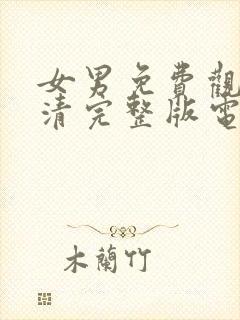 女男免費觀
清完整版電
木蘭竹